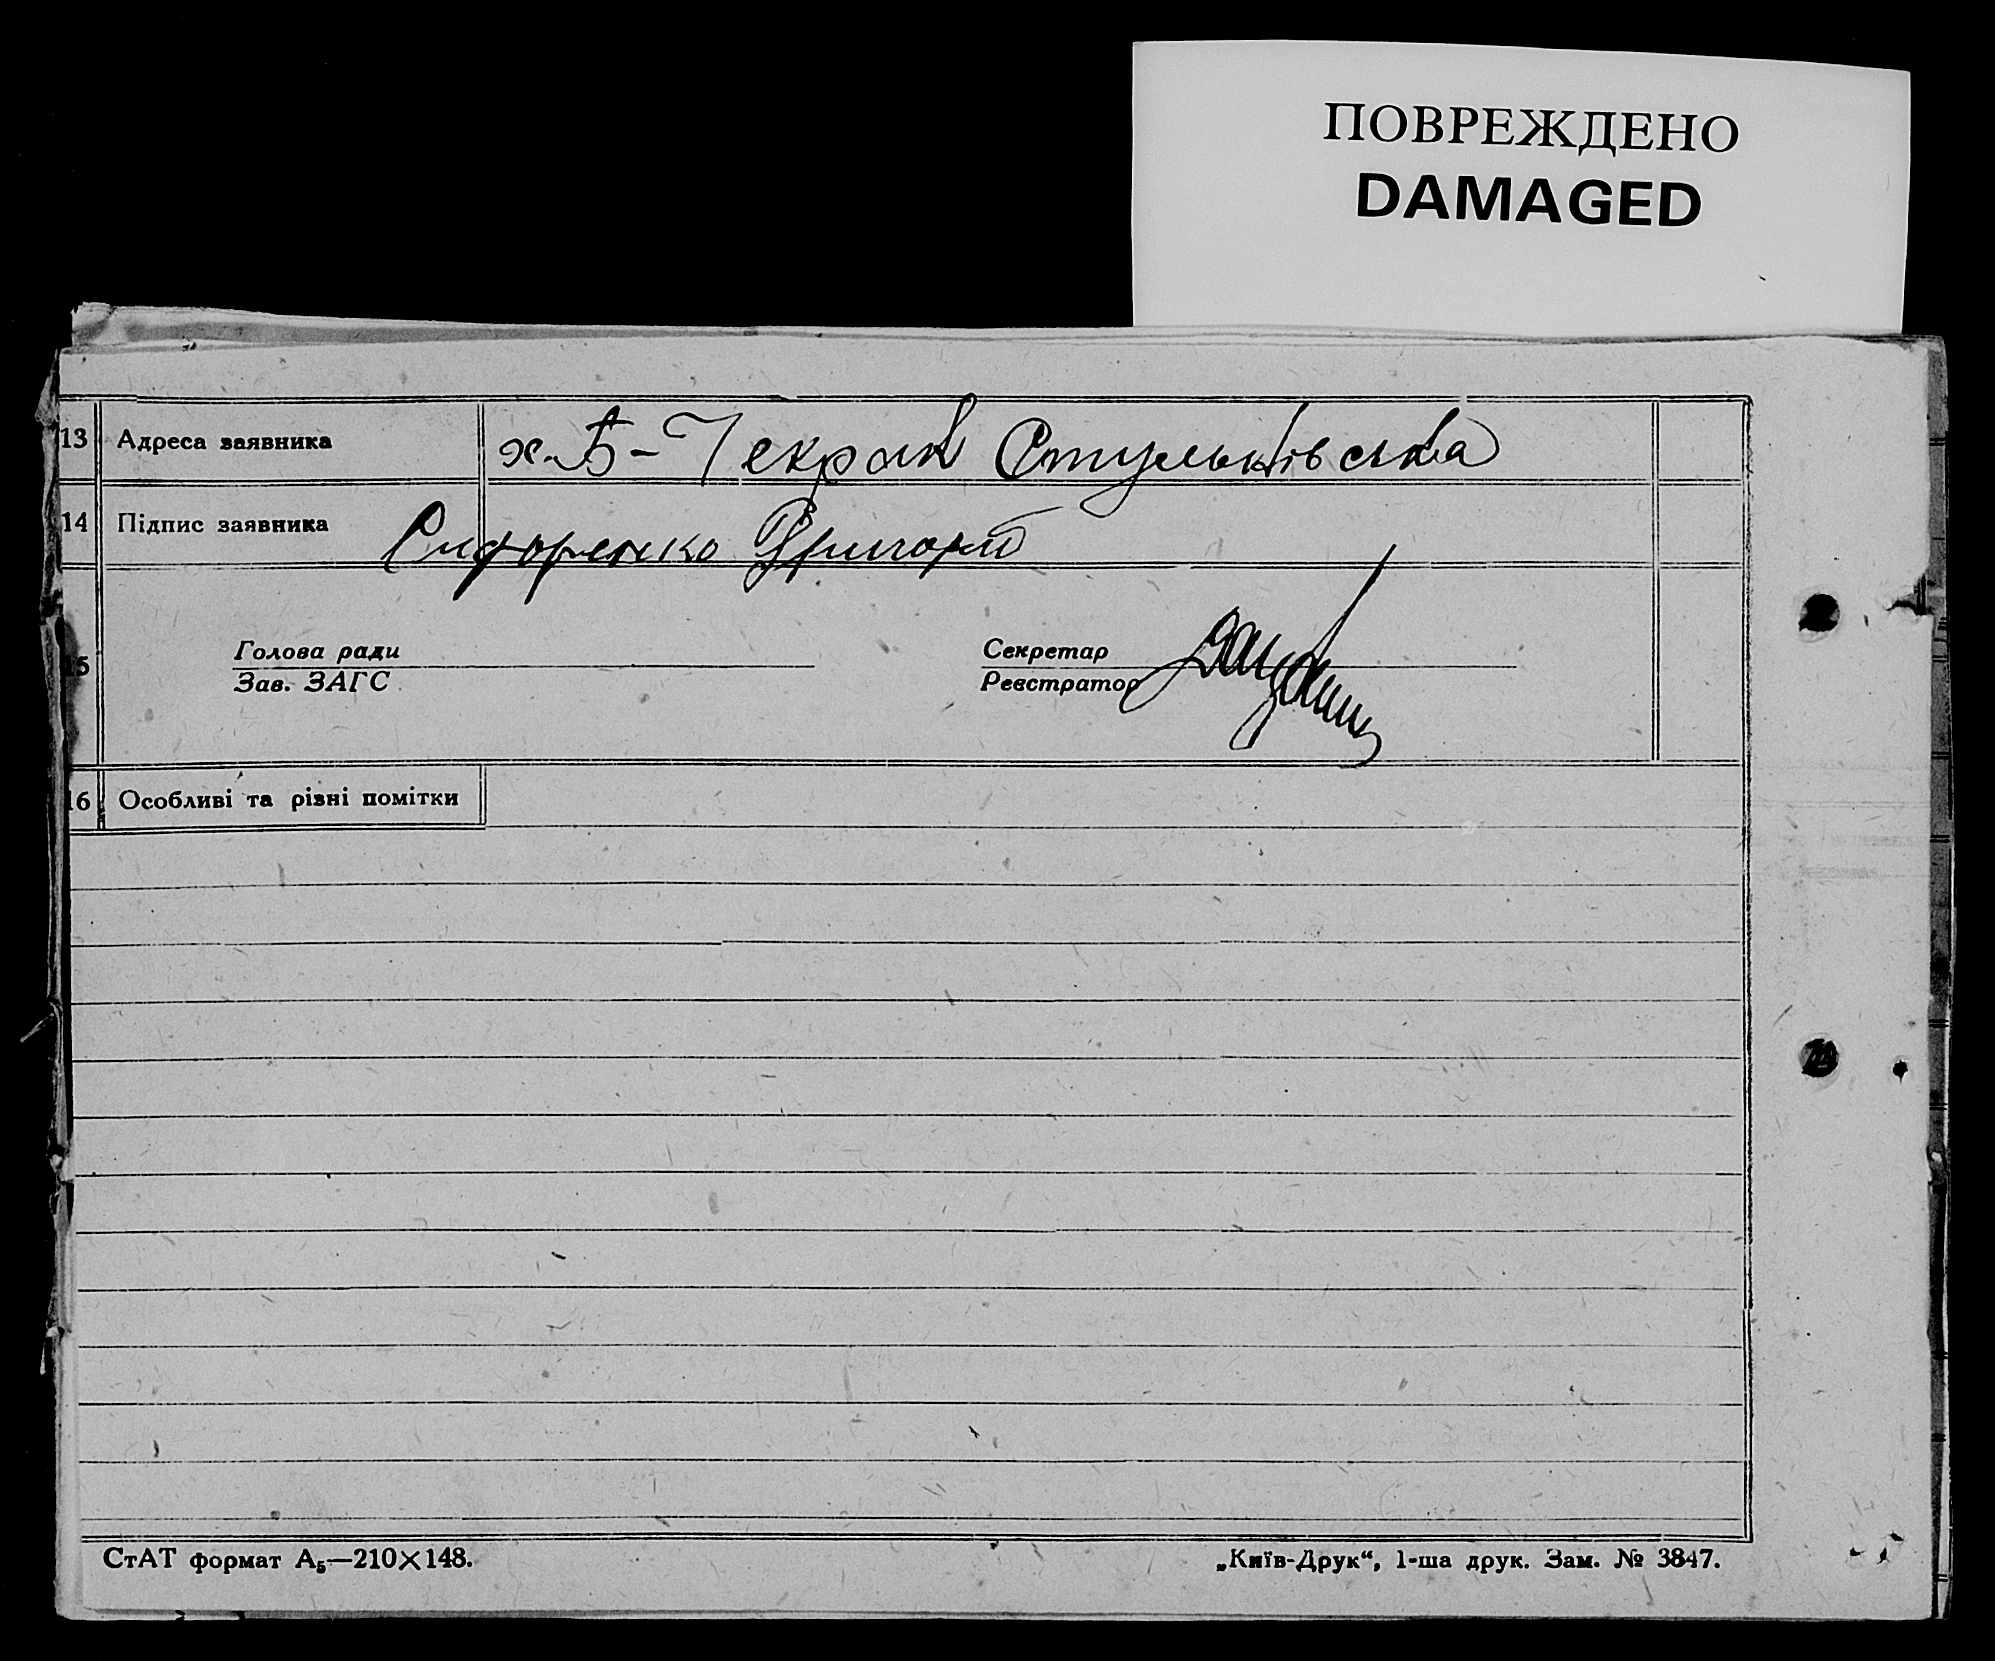 ПОВРЕЖДЕНО
DAMAGED
13 Адреса заявника х. Б-Чекрак Стульнівська
14 Підпис заявника Сидоренко Григорій
15
Голова ради Секретар
Зав. ЗАГС Реєстратор
16 Особливі та різні помітки
СтАТ формат А₅—210×148. „Київ-Друк“, 1-ша друк. Зам. № 3847.